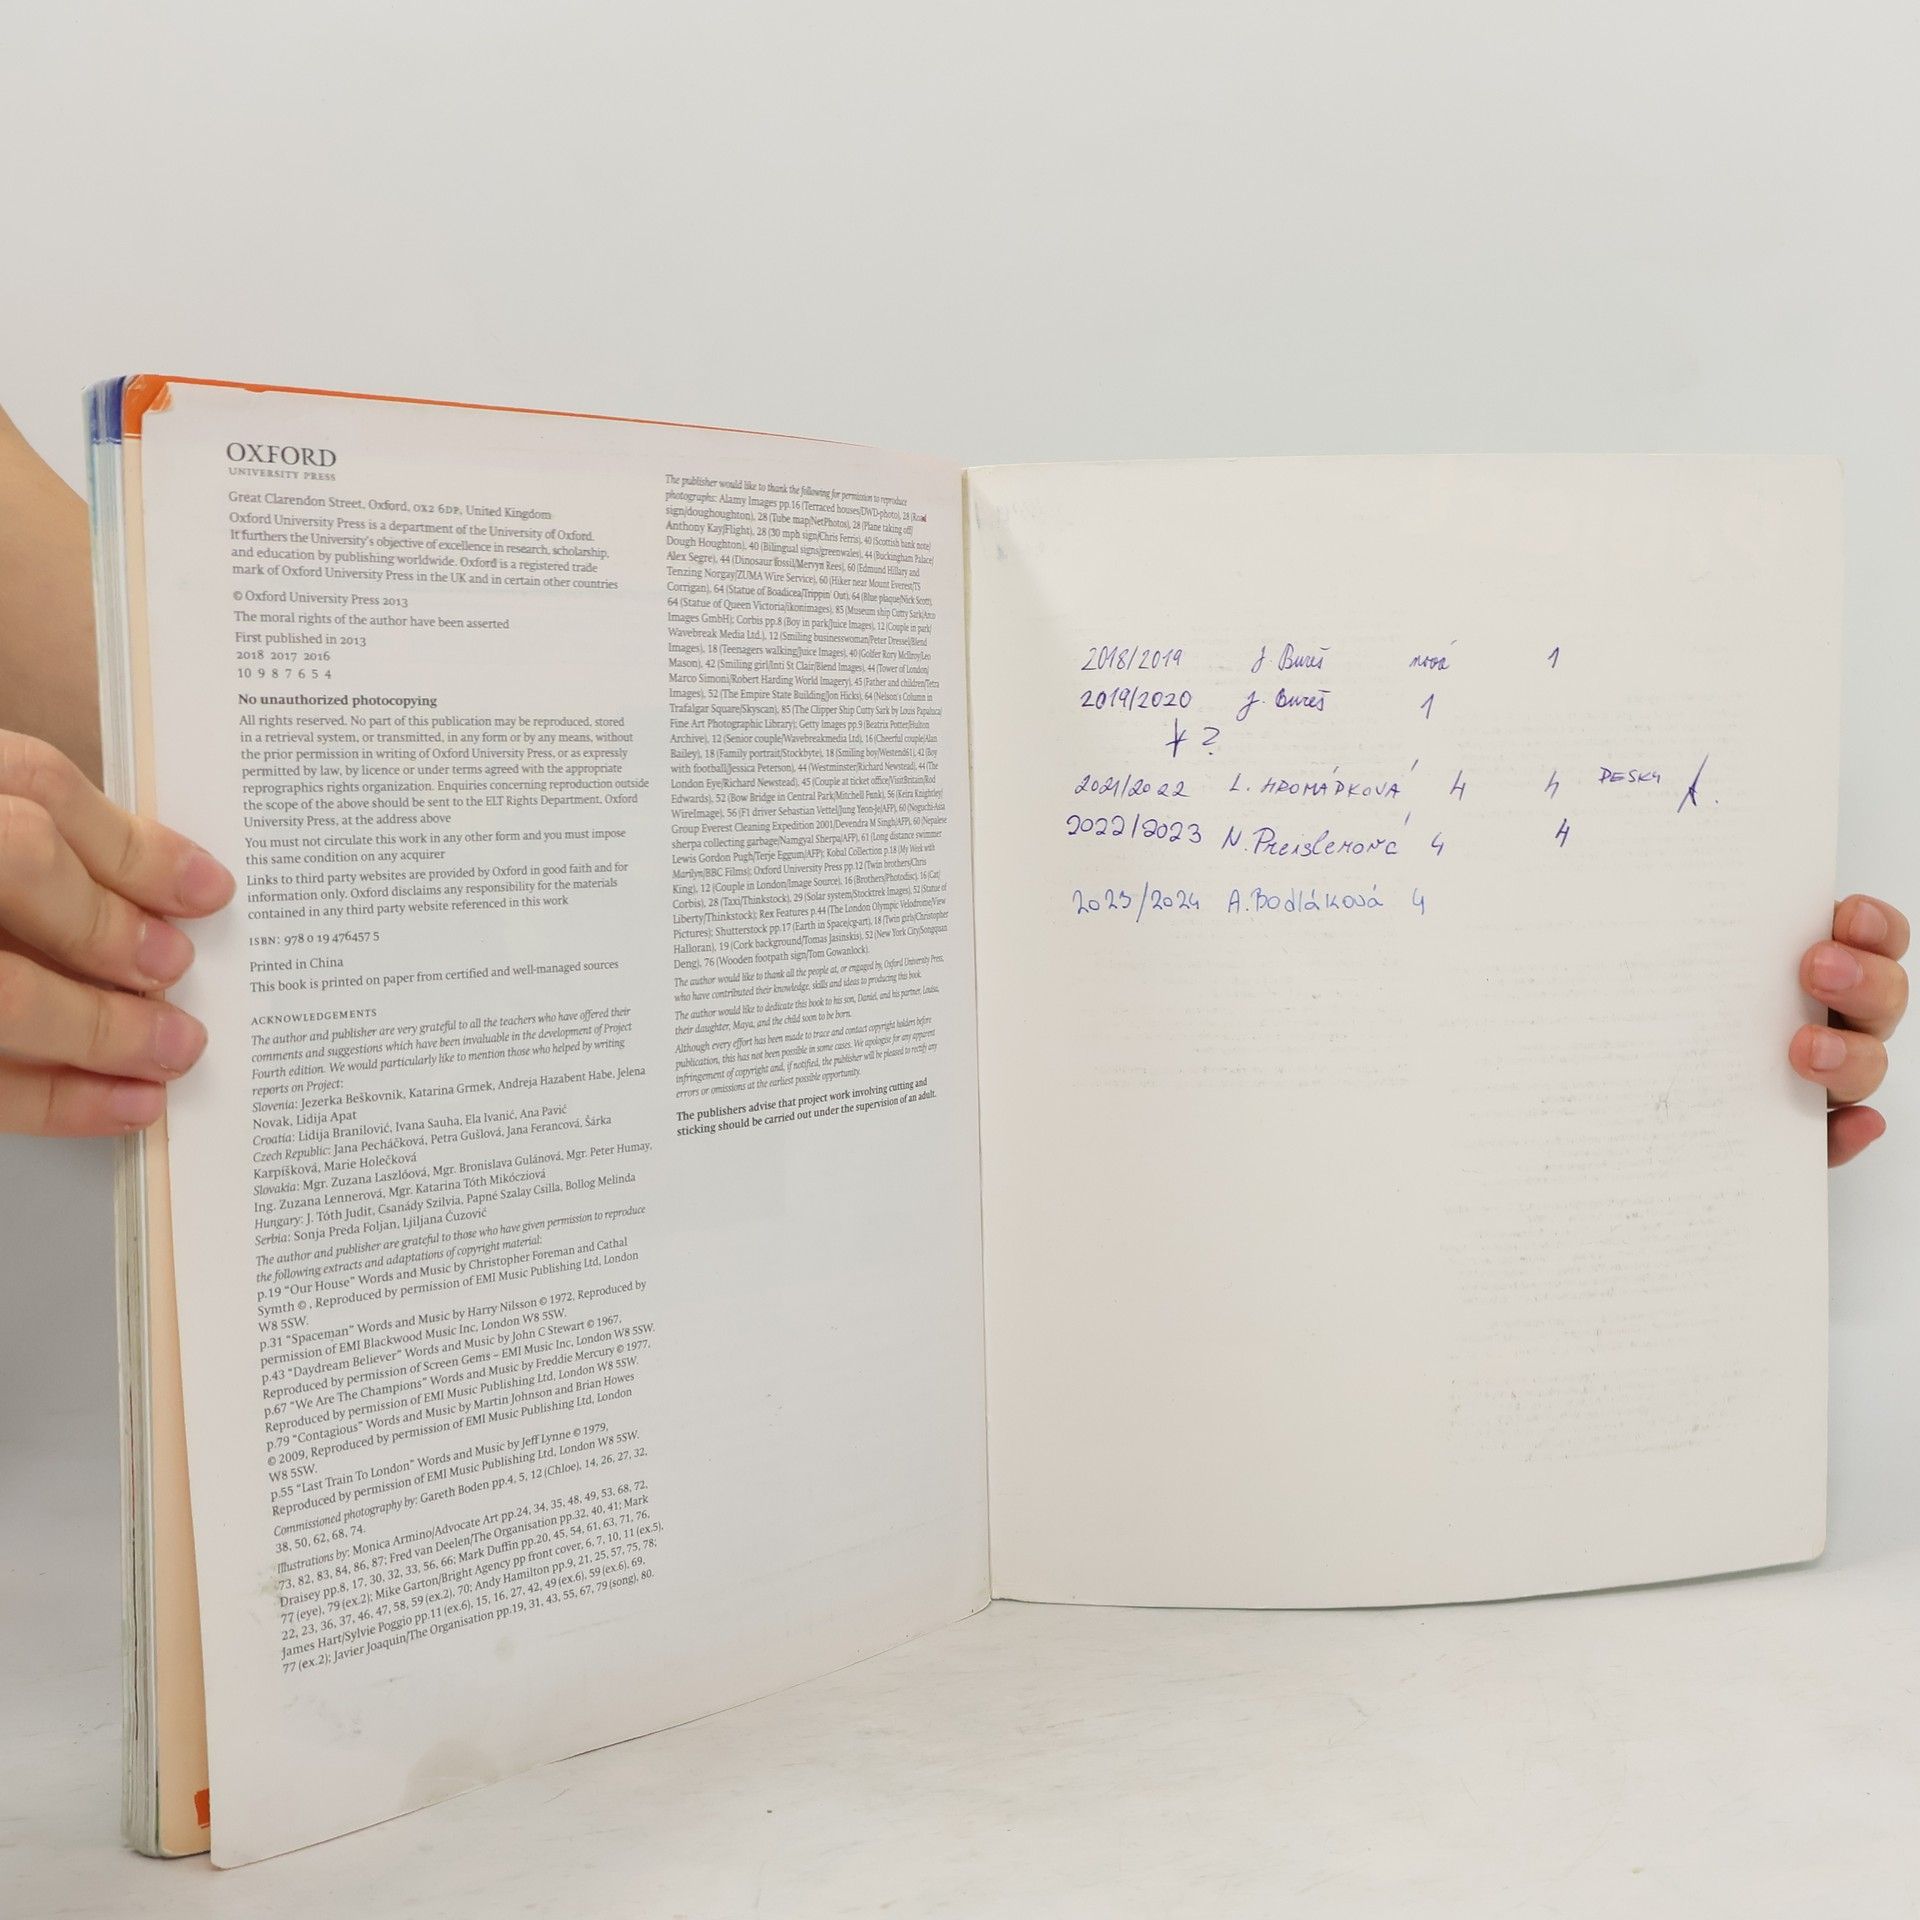 OXFORD
UNIVERSITY PRESS
Great Clarendon Street, Oxford, OX2 6DP, United Kingdom
Oxford University Press is a department of the University of Oxford.
It furthers the University's objective of excellence in research, scholarship,
and education by publishing worldwide. Oxford is a registered trade
mark of Oxford University Press in the UK and in certain other countries
© Oxford University Press 2013
The moral rights of the author have been asserted
First published in 2013
2018 2017 2016
10 9 8 7 6 5 4
No unauthorized photocopying
All rights reserved. No part of this publication may be reproduced, stored
in a retrieval system, or transmitted, in any form or by any means, without
the prior permission in writing of Oxford University Press, or as expressly
permitted by law, by licence or under terms agreed with the appropriate
reprographics rights organization. Enquiries concerning reproduction outside
the scope of the above should be sent to the ELT Rights Department, Oxford
University Press, at the address above
You must not circulate this work in any other form and you must impose
this same condition on any acquirer
Links to third party websites are provided by Oxford in good faith and for
information only. Oxford disclaims any responsibility for the materials
contained in any third party website referenced in this work
ISBN: 978 0 19 476457 5
Printed in China
This book is printed on paper from certified and well-managed sources
ACKNOWLEDGEMENTS
The author and publisher are very grateful to all the teachers who have offered their
comments and suggestions which have been invaluable in the development of Project
Fourth edition. We would particularly like to mention those who helped by writing
reports on Project:
Slovenia: Jezerka Beškovnik, Katarina Grmek, Andreja Hazabent Habe, Jelena
Novak, Lidija Apat
Croatia: Lidija Branilović, Ivana Sauha, Ela Ivanić, Ana Pavić
Czech Republic: Jana Pecháčková, Petra Gušlová, Jana Ferancová, Šárka
Karpíšková, Marie Holečková
Slovakia: Mgr. Zuzana Laszlóová, Mgr. Bronislava Gulánová, Mgr. Peter Humay,
Ing. Zuzana Lennerová, Mgr. Katarina Tóth Mikócziová
Hungary: J. Tóth Judit, Csanády Szilvia, Papné Szalay Csilla, Bollog Melinda
Serbia: Sonja Preda Foljan, Ljiljana Ćuzović
The author and publisher are grateful to those who have given permission to reproduce
the following extracts and adaptations of copyright material:
p.19 "Our House" Words and Music by Christopher Foreman and Cathal
Symth ©, Reproduced by permission of EMI Music Publishing Ltd, London
W8 5SW.
p.31 "Spaceman" Words and Music by Harry Nilsson © 1972, Reproduced by
permission of EMI Blackwood Music Inc, London W8 5SW.
p.43 "Daydream Believer" Words and Music by John C Stewart © 1967,
Reproduced by permission of Screen Gems – EMI Music Inc, London W8 5SW.
p.67 "We Are The Champions" Words and Music by Freddie Mercury © 1977,
Reproduced by permission of EMI Music Publishing Ltd, London W8 5SW.
p.79 "Contagious" Words and Music by Martin Johnson and Brian Howes
© 2009, Reproduced by permission of EMI Music Publishing Ltd, London
W8 5SW.
p.55 "Last Train To London" Words and Music by Jeff Lynne © 1979,
Reproduced by permission of EMI Music Publishing Ltd, London W8 5SW.
Commissioned photography by: Gareth Boden pp.4, 5, 12 (Chloe), 14, 26, 27, 32,
38, 50, 62, 68, 74.
Illustrations by: Monica Armino/Advocate Art pp.24, 34, 35, 48, 49, 53, 68, 72,
73, 82, 83, 84, 86, 87; Fred van Deelen/The Organisation pp.32, 40, 41; Mark
Draisey pp.8, 17, 30, 32, 33, 56, 66; Mark Duffin pp.20, 45, 54, 61, 63, 71, 76,
77 (eye), 79 (ex.2); Mike Garton/Bright Agency pp front cover, 6, 7, 10, 11 (ex.5),
22, 23, 36, 37, 46, 47, 58, 59 (ex.2), 70; Andy Hamilton pp.9, 21, 25, 57, 75, 78;
James Hart/Sylvie Poggio pp.11 (ex.6), 15, 16, 27, 42, 49 (ex.6), 59 (ex.6), 69,
77 (ex.2); Javier Joaquin/The Organisation pp.19, 31, 43, 55, 67, 79 (song), 80.
The publisher would like to thank the following for permission to reproduce
photographs: Alamy Images pp.16 (Terraced houses/DWD-photo), 28 (Road
sign/doughoughton), 28 (Tube map/NetPhotos), 28 (Plane taking off/
Anthony Kay/Flight), 28 (30 mph sign/Chris Ferris), 40 (Scottish bank note/
Dough Houghton), 40 (Bilingual signs/greenwales), 44 (Buckingham Palace/
Alex Segre), 44 (Dinosaur fossil/Mervyn Rees), 60 (Edmund Hillary and
Tenzing Norgay/ZUMA Wire Service), 60 (Hiker near Mount Everest/TS
Corrigan), 64 (Statue of Boadicea/Trippin' Out), 64 (Blue plaque/Nick Scott),
64 (Statue of Queen Victoria/ikonimages), 85 (Museum ship Cutty Sark/Arco
Images GmbH); Corbis pp.8 (Boy in park/Juice Images), 12 (Couple in park/
Wavebreak Media Ltd.), 12 (Smiling businesswoman/Peter Dressel/Blend
Images), 18 (Teenagers walking/Juice Images), 40 (Golfer Rory McIlroy/Leo
Mason), 42 (Smiling girl/Inti St Clair/Blend Images), 44 (Tower of London/
Marco Simoni/Robert Harding World Imagery), 45 (Father and children/Tetra
Images), 52 (The Empire State Building/Jon Hicks), 64 (Nelson's Column in
Trafalgar Square/Skyscan), 85 (The Clipper Ship Cutty Sark by Louis Papaluca/
Fine Art Photographic Library); Getty Images pp.9 (Beatrix Potter/Hulton
Archive), 12 (Senior couple/Wavebreakmedia Ltd), 16 (Cheerful couple/Alan
Bailey), 18 (Family portrait/Stockbyte), 18 (Smiling boy/Westend61), 42 (Boy
with football/Jessica Peterson), 44 (Westminster/Richard Newstead), 44 (The
London Eye/Richard Newstead), 45 (Couple at ticket office/VisitBritain/Rod
Edwards), 52 (Bow Bridge in Central Park/Mitchell Funk), 56 (Keira Knightley/
WireImage), 56 (F1 driver Sebastian Vettel/Jung Yeon-Je/AFP), 60 (Noguchi-Asia
Group Everest Cleaning Expedition 2001/Devendra M Singh/AFP), 60 (Nepalese
sherpa collecting garbage/Namgyal Sherpa/AFP), 61 (Long distance swimmer
Lewis Gordon Pugh/Terje Eggum/AFP); Kobal Collection p.18 (My Week with
Marilyn/BBC Films); Oxford University Press pp.12 (Twin brothers/Chris
King), 12 (Couple in London/Image Source), 16 (Brothers/Photodisc), 16 (Cat/
Corbis), 28 (Taxi/Thinkstock), 29 (Solar system/Stocktrek Images), 52 (Statue of
Liberty/Thinkstock); Rex Features p.44 (The London Olympic Velodrome/View
Pictures); Shutterstock pp.17 (Earth in Space/cg-art), 18 (Twin girls/Christopher
Halloran), 19 (Cork background/Tomas Jasinskis), 52 (New York City/Songquan
Deng), 76 (Wooden footpath sign/Tom Gowanlock).
The author would like to thank all the people at, or engaged by, Oxford University Press,
who have contributed their knowledge, skills and ideas to producing this book.
The author would like to dedicate this book to his son, Daniel, and his partner, Louisa,
their daughter, Maya, and the child soon to be born.
Although every effort has been made to trace and contact copyright holders before
publication, this has not been possible in some cases. We apologise for any apparent
infringement of copyright and, if notified, the publisher will be pleased to rectify any
errors or omissions at the earliest possible opportunity.
The publishers advise that project work involving cutting and
sticking should be carried out under the supervision of an adult.
2018/2019 J. Bureš nová 1
2019/2020 J. Bureš 1
?
2021/2022 L. HROMÁDKOVÁ 4 4 DESKY
2022/2023 N. Preislerová 4 4
2023/2024 A. Bodláková 4